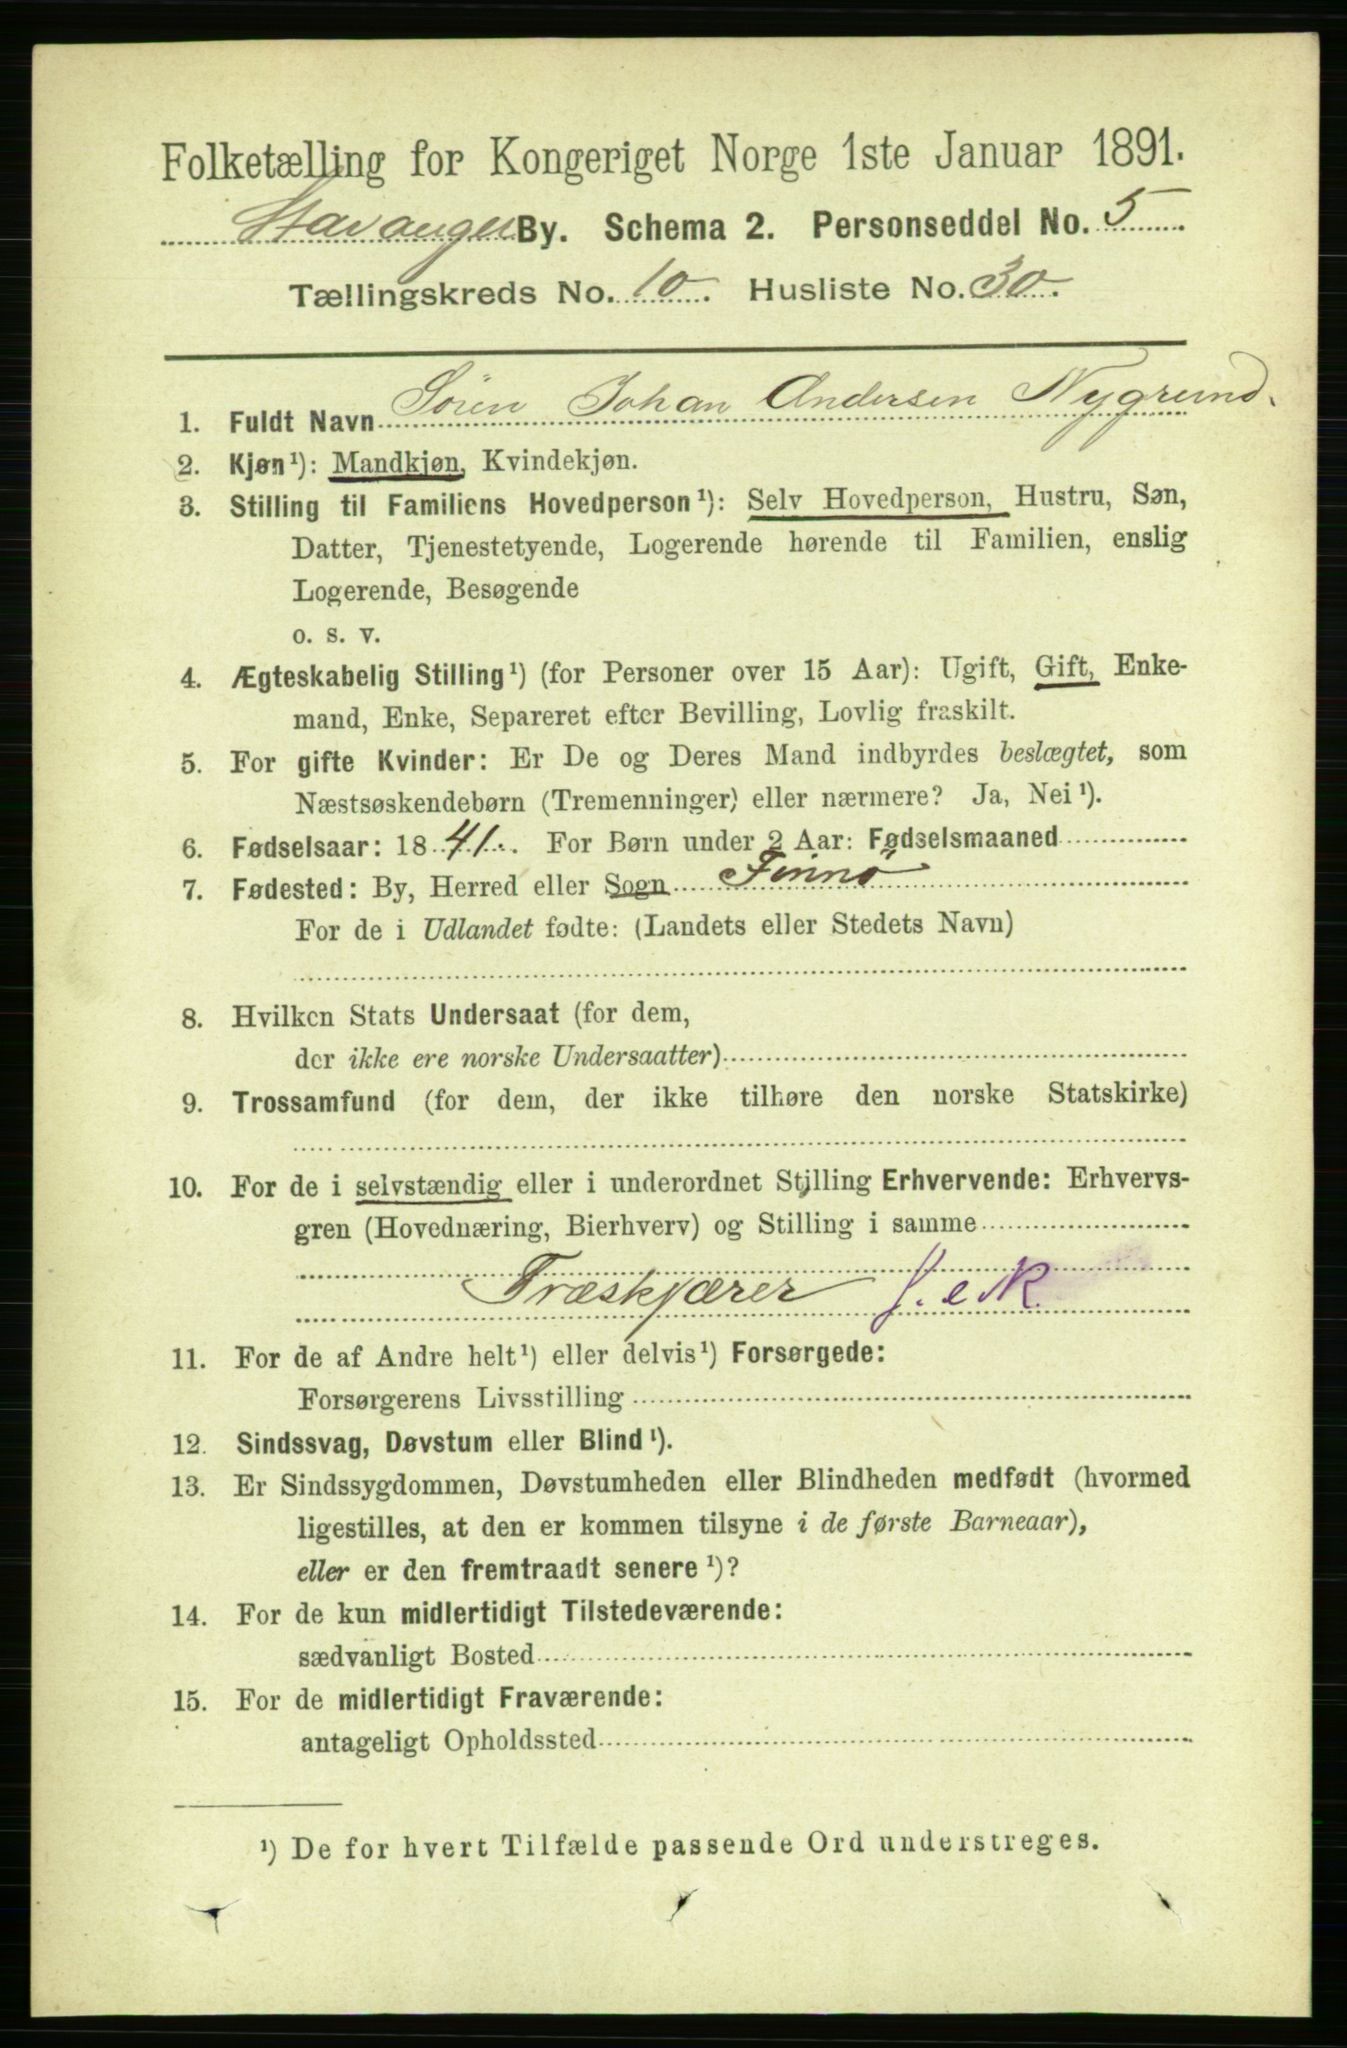 Folketælling for Kongeriget Norge 1ste Januar 1891.
Stavanger By. Schema 2. Personseddel No. 5
Tællingskreds No. 10. Husliste No. 30.
1. Fuldt Navn Sören Johan Andersen Nygrund.
2. Kjøn¹): Mandkjøn, Kvindekjøn.
3. Stilling til Familiens Hovedperson¹): Selv Hovedperson, Hustru, Søn,
Datter, Tjenestetyende, Logerende hørende til Familien, enslig
Logerende, Besøgende
o. s. v.
4. Ægteskabelig Stilling¹) (for Personer over 15 Aar): Ugift, Gift, Enke-
mand, Enke, Separeret efter Bevilling, Lovlig fraskilt.
5. For gifte Kvinder: Er De og Deres Mand indbyrdes beslægtet, som
Næstsøskendebørn (Tremenninger) eller nærmere? Ja, Nei¹).
6. Fødselsaar: 1841. For Børn under 2 Aar: Fødselsmaaned
7. Fødested: By, Herred eller Sogn Finnö
For de i Udlandet fødte: (Landets eller Stedets Navn)
8. Hvilken Stats Undersaat (for dem,
der ikke ere norske Undersaatter)
9. Trossamfund (for dem, der ikke tilhøre den norske Statskirke)
10. For de i selvstændig eller i underordnet Stilling Erhvervende: Erhvervs-
gren (Hovednæring, Bierhverv) og Stilling i samme
Træskjærer
11. For de af Andre helt¹) eller delvis¹) Forsørgede:
Forsørgerens Livsstilling
12. Sindssvag, Døvstum eller Blind¹).
13. Er Sindssygdommen, Døvstumheden eller Blindheden medfødt (hvormed
ligestilles, at den er kommen tilsyne i de første Barneaar),
eller er den fremtraadt senere¹)?
14. For de kun midlertidigt Tilstedeværende:
sædvanligt Bosted
15. For de midlertidigt Fraværende:
antageligt Opholdssted
¹) De for hvert Tilfælde passende Ord understreges.